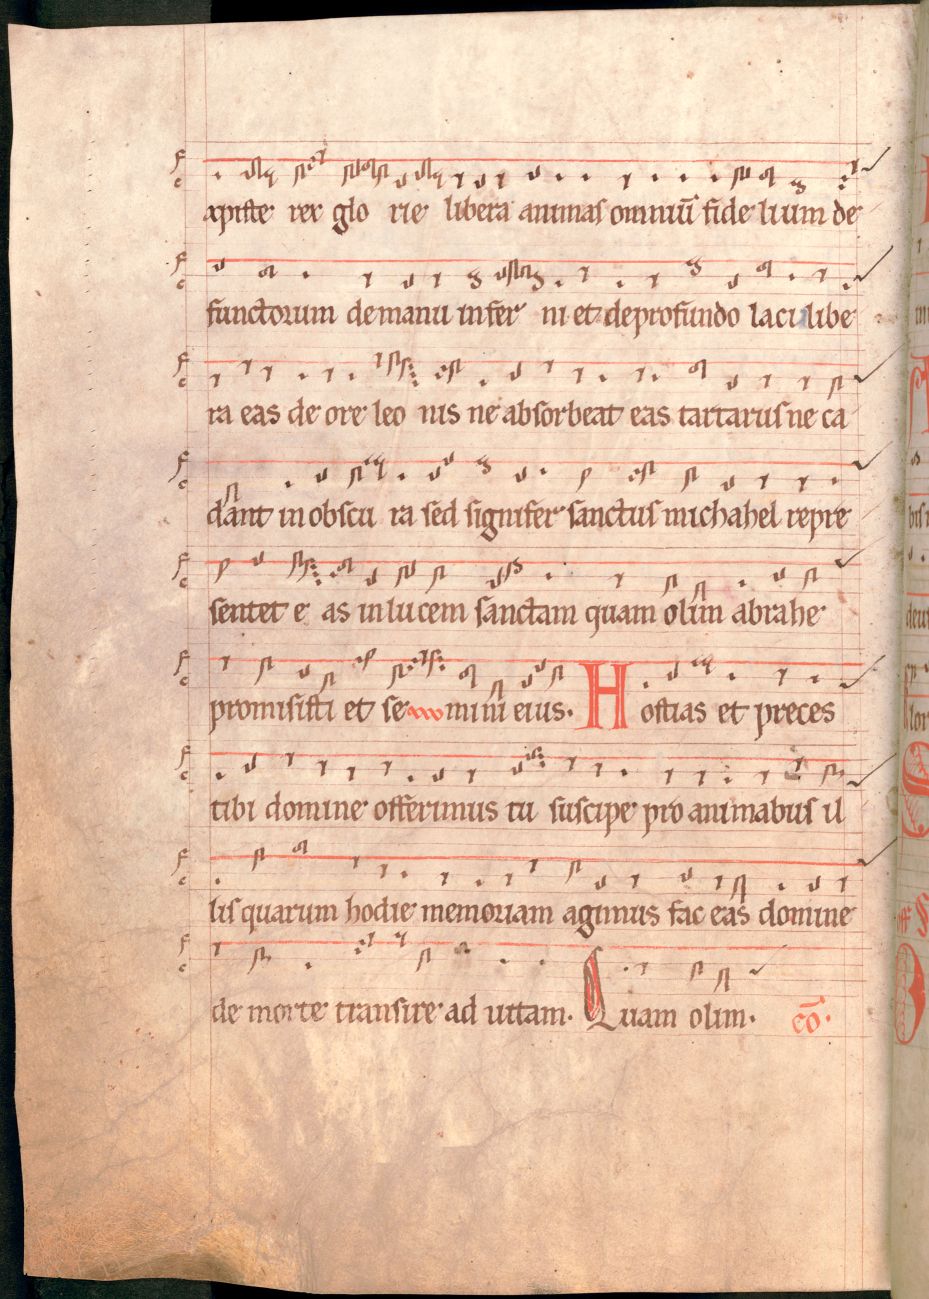 xpiste rex glo rie libera animas omniū fide lium de
functorum de manu infer ni et de profundo laci libe
ra eas de ore leo nis ne absorbeat eas tartarus ne ca
dant in obscu ra sed signifer sanctus michahel repre
sentet e as in lucem sanctam quam olim abrahe
promisisti et se mini eius. Hostias et preces
tibi domine offerimus tu suscipe pro animabus il
lis quarum hodie memoriam agimus fac eas domine
de morte transire ad uitam. Quam olim. cō.